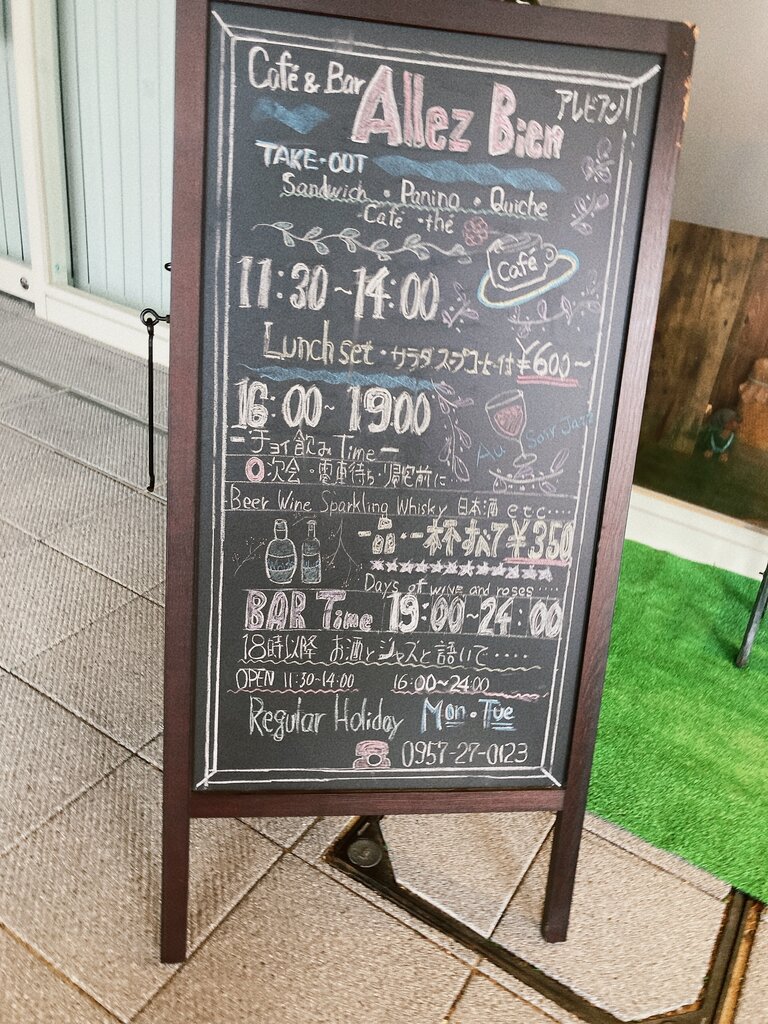 Café & Bar Allez Bien アレビアン
TAKE-OUT
Sandwich・Panino・Quiche
Café・thé
Café
11:30~14:00
Lunch set・サラダスープコーヒー付¥600~
16:00~1900
-チョイ飲みTime-
◎次会・電車待ち・帰宅前に
Au Soir Jazz
Beer Wine Sparkling Whisky 日本酒 etc....
一品・一杯 ¥350
Days of wine and roses....
BAR Time 19:00~24:00
18時以降 お酒とジャズと語いて....
OPEN 11:30-14:00 16:00~24:00
Regular Holiday Mon・Tue
☎ 0957-27-0123